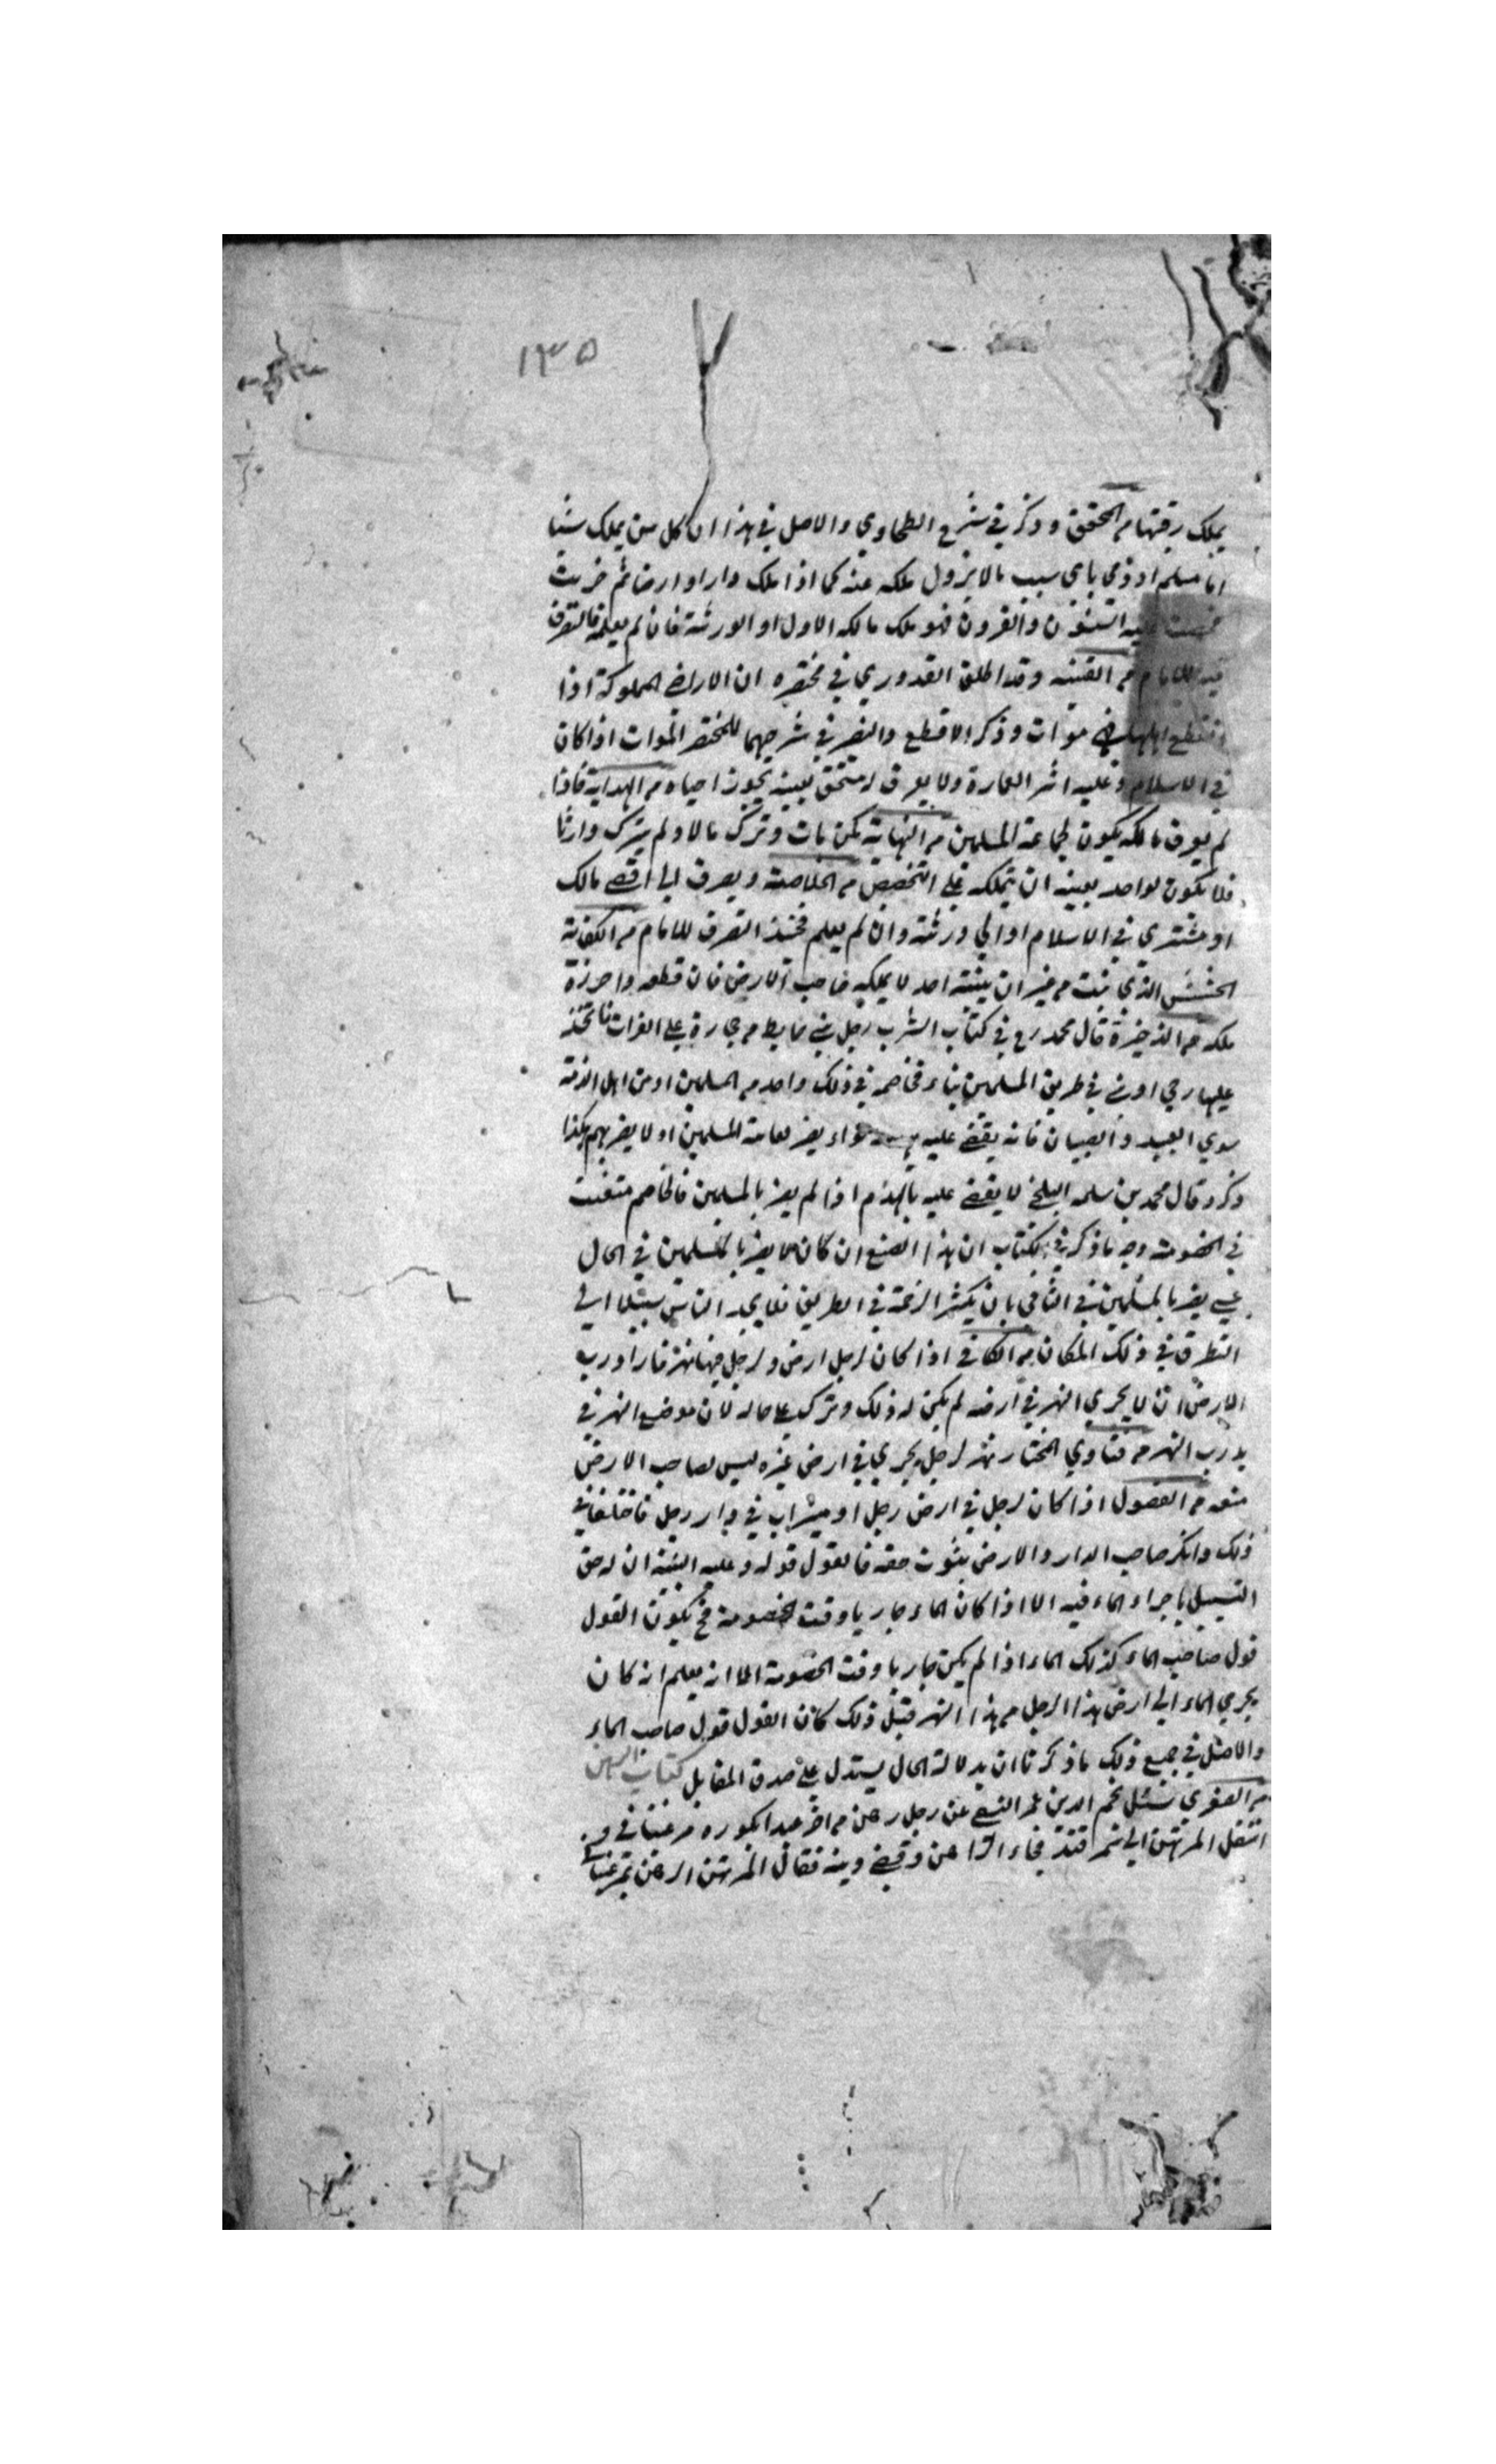 ١٣٥
يملك رقبتها من المحقق وذكر في شرح الطحاوي والاصل في هذا ان كل من يملك شيئا
اما مسلم او ذمي باي سبب ما لا يزول ملكه عنه كما اذا ملك دارا او ارضا ثم خربت
عليه السنون والقرون فهو ملك مالكه الاول او الورثة فان لم يعلم فالتصرف
فيه للامام من القنية وقد اطلق القدوري في مختصره ان الاراضي المملوكة اذا
انقطع اهلها فهي موات وذكر الاقطع والنصر في شرحهما للمختصر الموات اذا كان
في الاسلام وعليه اثر العمارة ولا يعرف له مستحق بعينه يجوز احياه من الهداية فاذا
لم يعرف مالكه يكون لجماعة المسلمين من النهاية كمن مات وترك مالا ولم يترك وارثا
فلا يكون لواحد بعينه ان يتملكه على التخصيص من الخلاصة ويصرف الى اقصى مالك
او مشتري في الاسلام او الى ورثته وان لم يعلم فحينئذ التصرف للامام من الكفاية
الحشيش الذي نبت من غير ان ينبته احد لا يملكه صاحب الارض فان قطعه واحرزه
ملكه من الذخيرة قال محمد رح في كتاب الشرب رجل بنى حايط من حجارة على الفرات فاتخذ
عليها رحى او بنى في طريق المسلمين بناء فخاصمه في ذلك واحد من المسلمين او من اهل الذمة
سوي العبيد والصبيان فانه يقضى عليه سواء يضر لعامة المسلمين او لا يضر بهم هكذا
ذكر وقال محمد بن سلمه البلخي لا يقضى عليه بالهدم اذا لم يضر بالمسلمين فالخاصم متعنت
في الخصومة وجه ما ذكر في الكتاب ان هذا الصنع ان كان لا يضر بالمسلمين في الحال
عسى يضر بالمسلمين في الثاني بان يكثر الزحمة في الطريق فلا يجد الناس سبيلا الى
التطرق في ذلك المكان من الكافي اذا كان لرجل ارض ولرجل فيها نهر فاراد رب
الارض ان لا يجري النهر في ارضه لم يكن له ذلك وترك على حاله لان موضع النهر في
يد رب النهر من فتاوي المختار نهر لرجل يجري في ارض غيره ليس لصاحب الارض
منعه من الفصول اذا كان لرجل في ارض رجل او ميزاب في دار رجل فاختلفا في
ذلك وانكر صاحب الدار والارض بثبوت حقه فالقول قوله وعليه البينة ان له حق
التسييل باجراء الماء فيه الا اذا كان الماء جاريا وقت الخصومة فح يكون القول
قول صاحب الماء كذلك الماء اذا لم يكن جاريا وقت الخصومة الا انه يعلم انه كان
يجري الماء الى ارض هذا الرجل من هذا النهر قبل ذلك كان القول قول صاحب الماء
والاصل في جميع ذلك ما ذكرنا ان بدلالة الحال يستدل على صدق المقابل كتاب الرهن
من الصغري سئل نجم الدين عمر النسفي عن رجل رهن من اخر عبدا بكوره مرغينان في
انتقل المرتهن الى سمرقند فجاء الراهن وقضى دينه فقال المرتهن الرهن بمرغينان